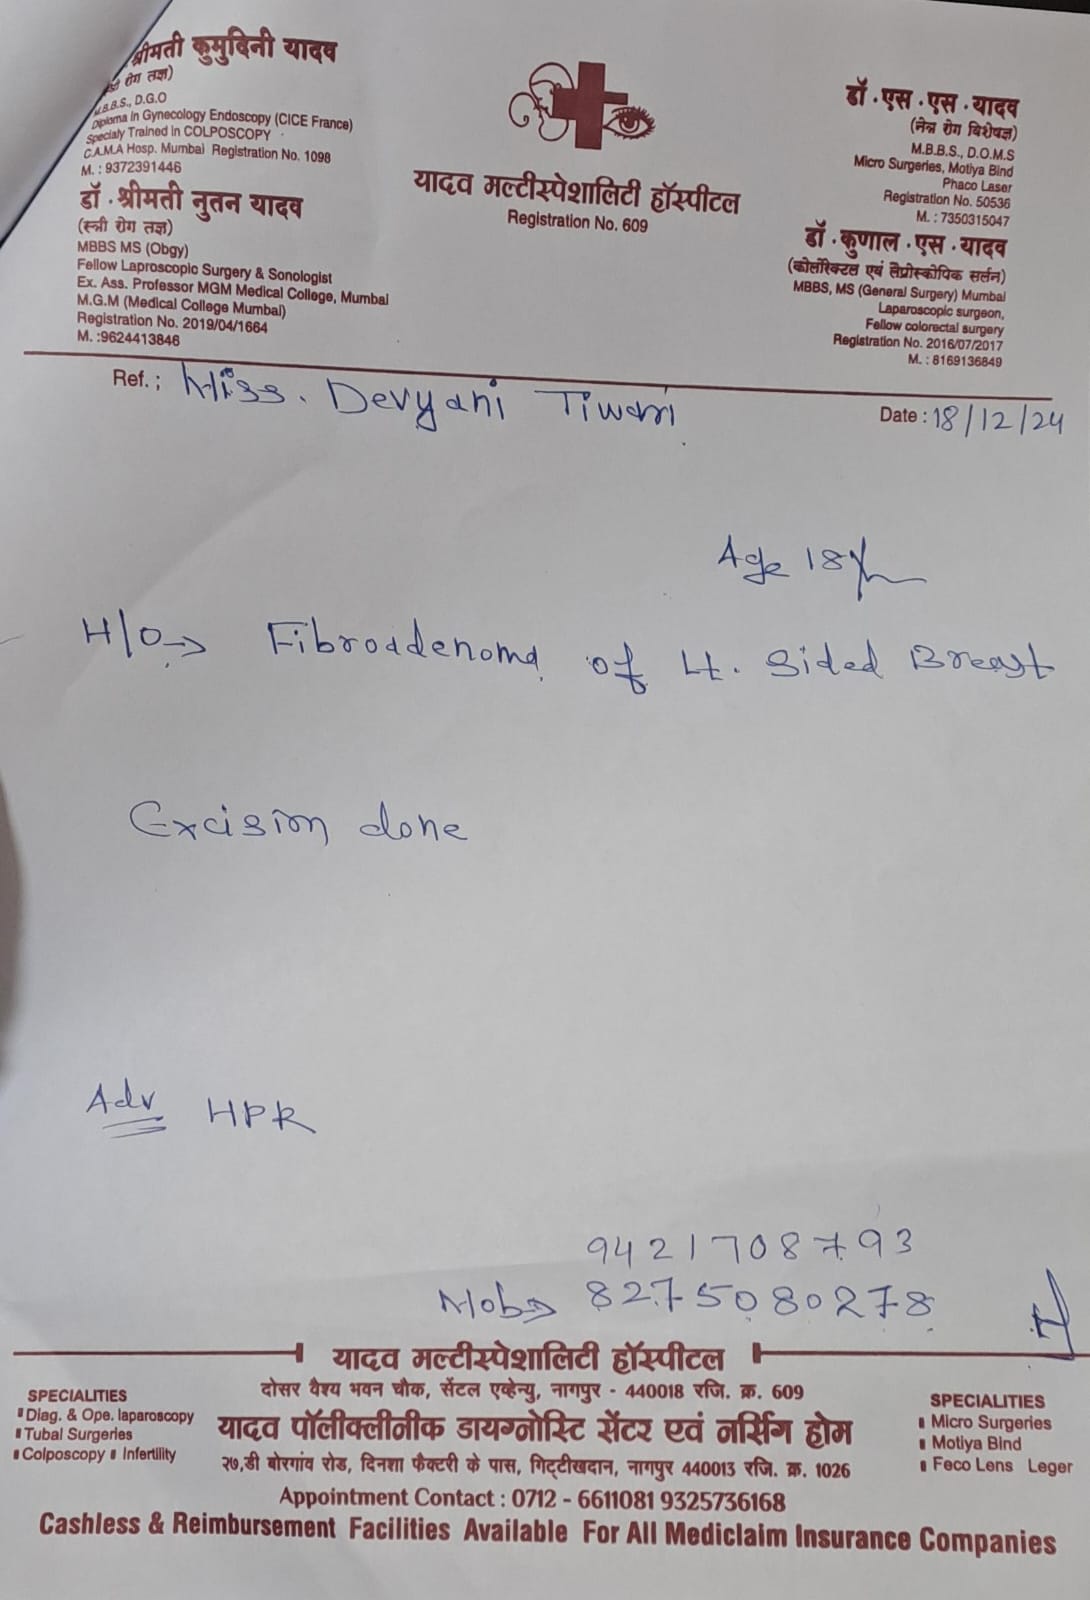 श्रीमती कुमुदिनी यादव
रोग तज्ञ)
M.B.B.S., D.G.O
Diploma in Gynecology Endoscopy (CICE France)
Specialy Trained in COLPOSCOPY
C.A.M.A Hosp. Mumbai Registration No. 1098
M. : 9372391446
डॉ. श्रीमती नुतन यादव
(स्त्री रोग तज्ञ)
MBBS MS (Obgy)
Fellow Laproscopic Surgery & Sonologist
Ex. Ass. Professor MGM Medical College, Mumbai
M.G.M (Medical College Mumbai)
Registration No. 2019/04/1664
M. :9624413846
यादव मल्टीस्पेशालिटी हॉस्पीटल
Registration No. 609
डॉ. एस. एस. यादव
(नेत्र रोग विशेषज्ञ)
M.B.B.S., D.O.M.S
Micro Surgeries, Motiya Bind
Phaco Laser
Registration No. 50536
M. : 7350315047
डॉ. कुणाल. एस. यादव
(कोलोरेक्टल एवं लेप्रोस्कोपिक सर्जन)
MBBS, MS (General Surgery) Mumbai
Laparoscopic surgeon,
Fellow colorectal surgery
Registration No. 2016/07/2017
M. : 8169136849
Ref. ; Miss. Devyani Tiwari
Date : 18/12/24
Age 18y
H/O → Fibroadenoma of Lt. sided Breast
Excision done
Adv HPR
9421708793
Mob → 8275080278
यादव मल्टीस्पेशालिटी हॉस्पीटल
दोसर वैश्य भवन चौक, सेंटल एव्हेन्यु, नागपुर - 440018 रजि. क्र. 609
यादव पॉलीक्लीनीक डायग्नोस्टि सेंटर एवं नर्सिंग होम
२७,डी बोरगांव रोड, दिनशा फैक्टरी के पास, गिट्टीखदान, नागपुर 440013 रजि. क्र. 1026
SPECIALITIES
Diag. & Ope. laparoscopy
Tubal Surgeries
Colposcopy Infertility
SPECIALITIES
Micro Surgeries
Motiya Bind
Feco Lens Leger
Appointment Contact : 0712 - 6611081 9325736168
Cashless & Reimbursement Facilities Available For All Mediclaim Insurance Companies